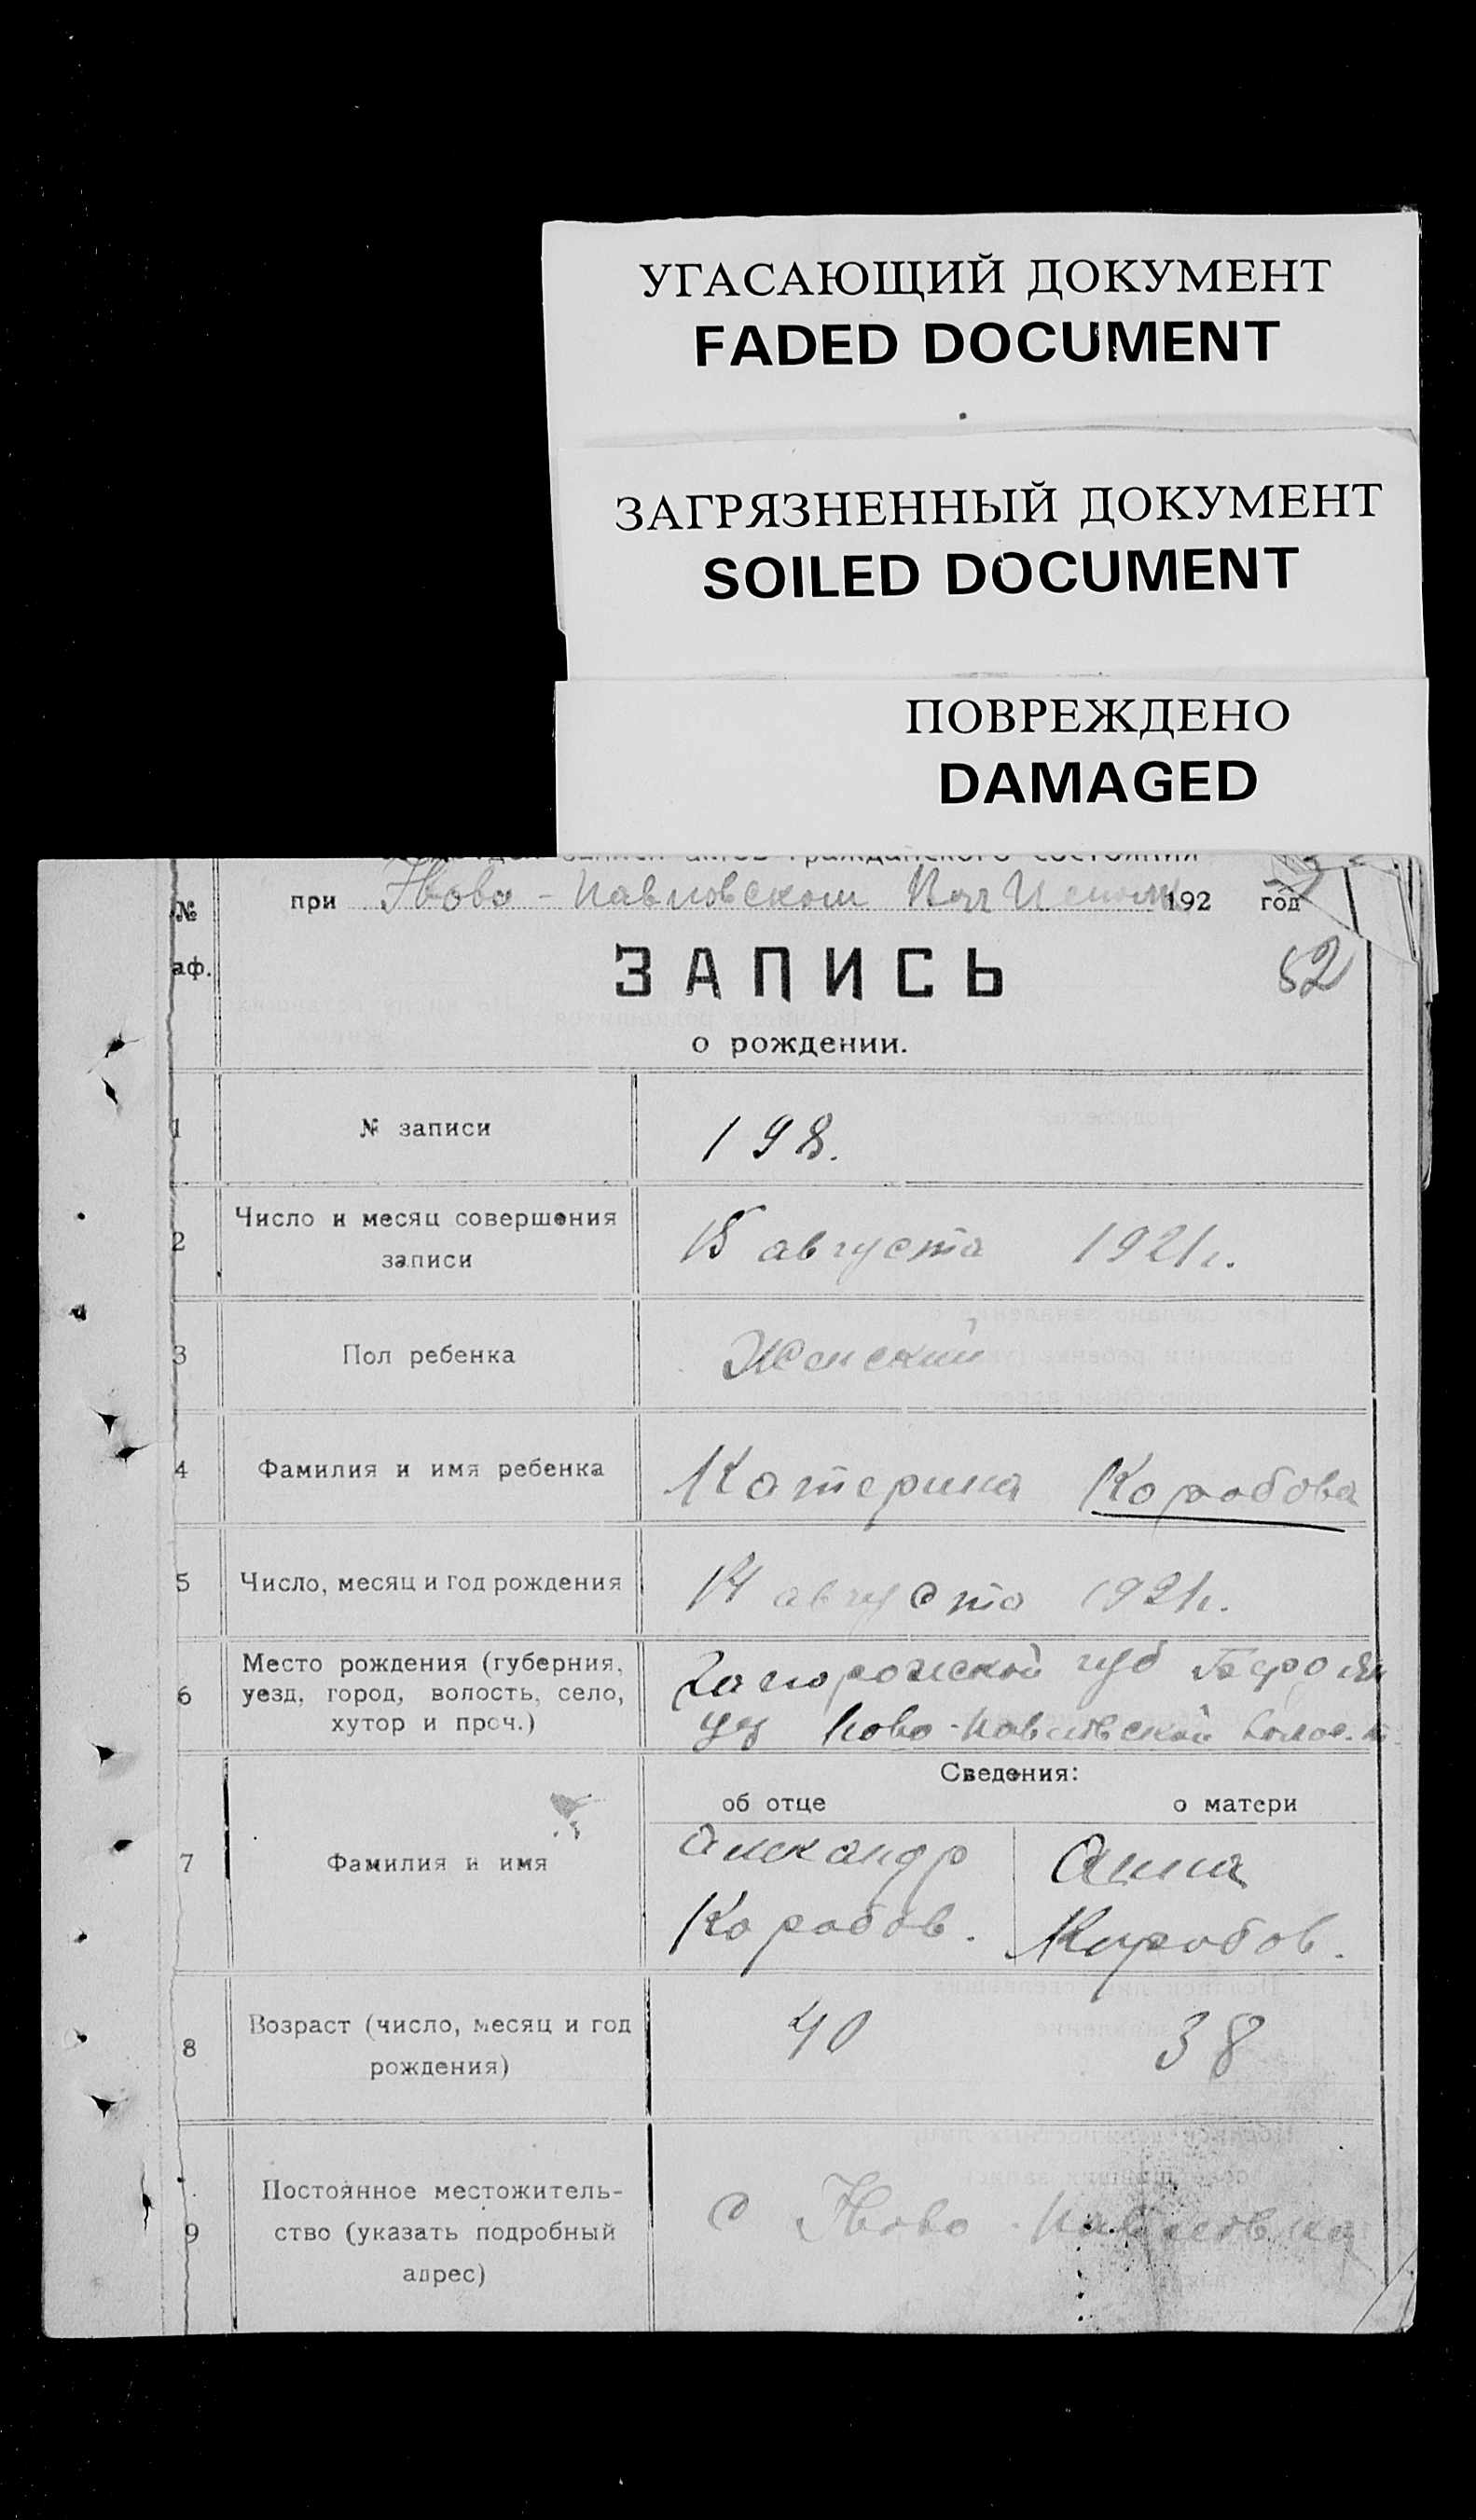 УГАСАЮЩИЙ ДОКУМЕНТ
FADED DOCUMENT
ЗАГРЯЗНЕННЫЙ ДОКУМЕНТ
SOILED DOCUMENT
ПОВРЕЖДЕНО
DAMAGED
записи актов гражданского состояния
№ при Ново-Павловском 192 год
аф. ЗАПИСЬ 52
о рождении.
1 № записи 198.
2 Число и месяц совершения
записи 15 августа 1921 г.
3 Пол ребенка Женский
4 Фамилия и имя ребенка Катерина Коробова
5 Число, месяц и год рождения 14 августа 1921 г.
6 Место рождения (губерния,
уезд, город, волость, село,
хутор и проч.)
Запорожской губ
уз Ново-Павловской
Сведения:
об отце о матери
7 Фамилия и имя
Александр Анна
Коробов. Коробов.
8 Возраст (число, месяц и год
рождения) 40 38
9 Постоянное местожитель-
ство (указать подробный
адрес)
с Ново-Павловка